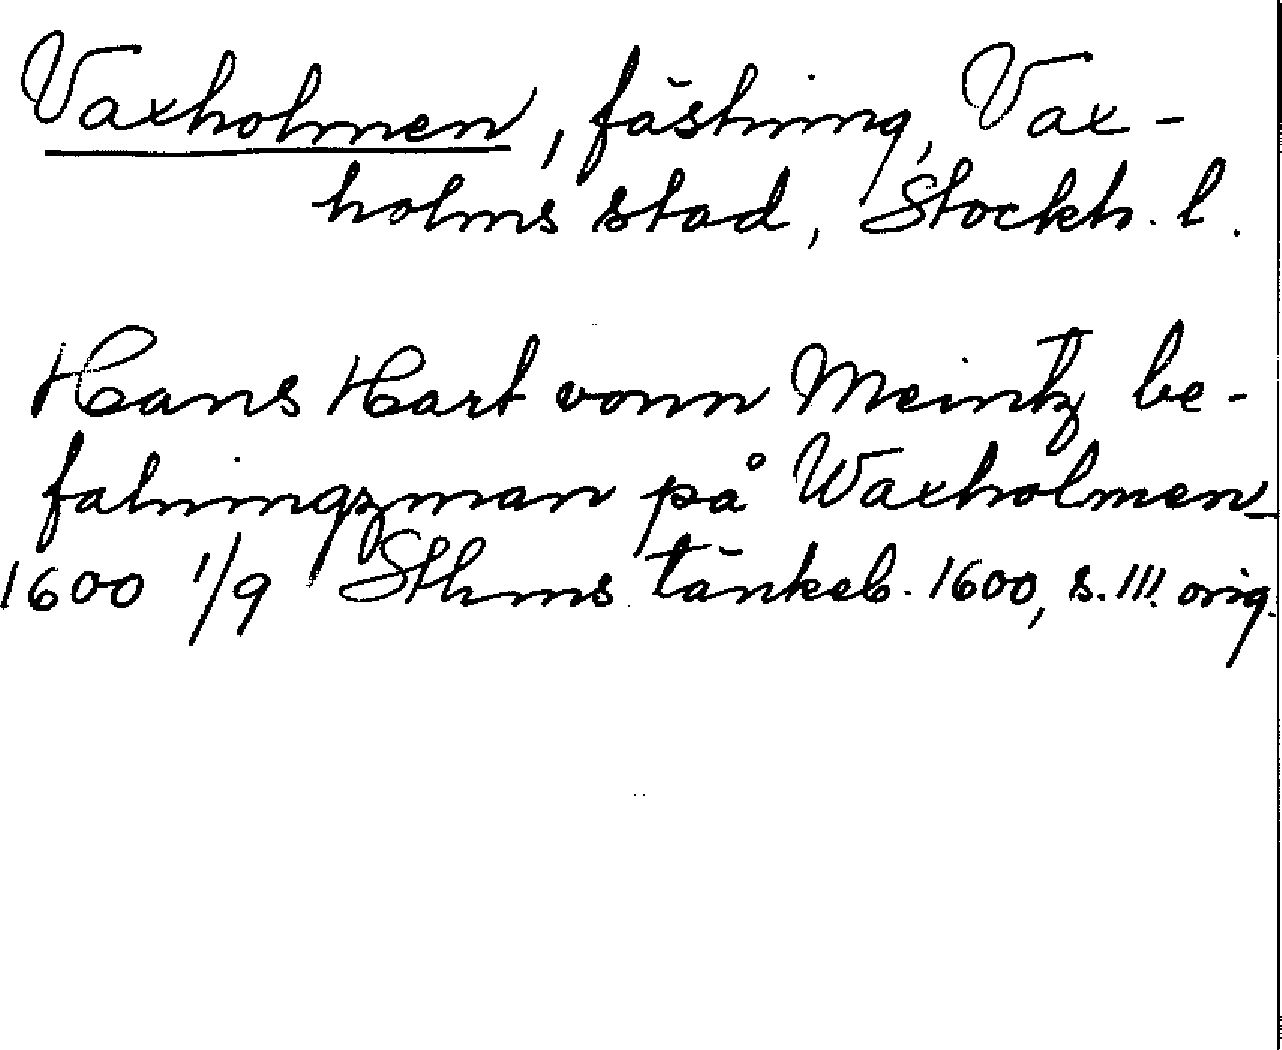 Vaxholmen, fästning, Vax-
holms stad, Stockh. l.
Hans Hart vonn Meintz be-
falningzman på Waxholmen
1600 1/9 Sthms tänkeb. 1600, s. 111. orig.